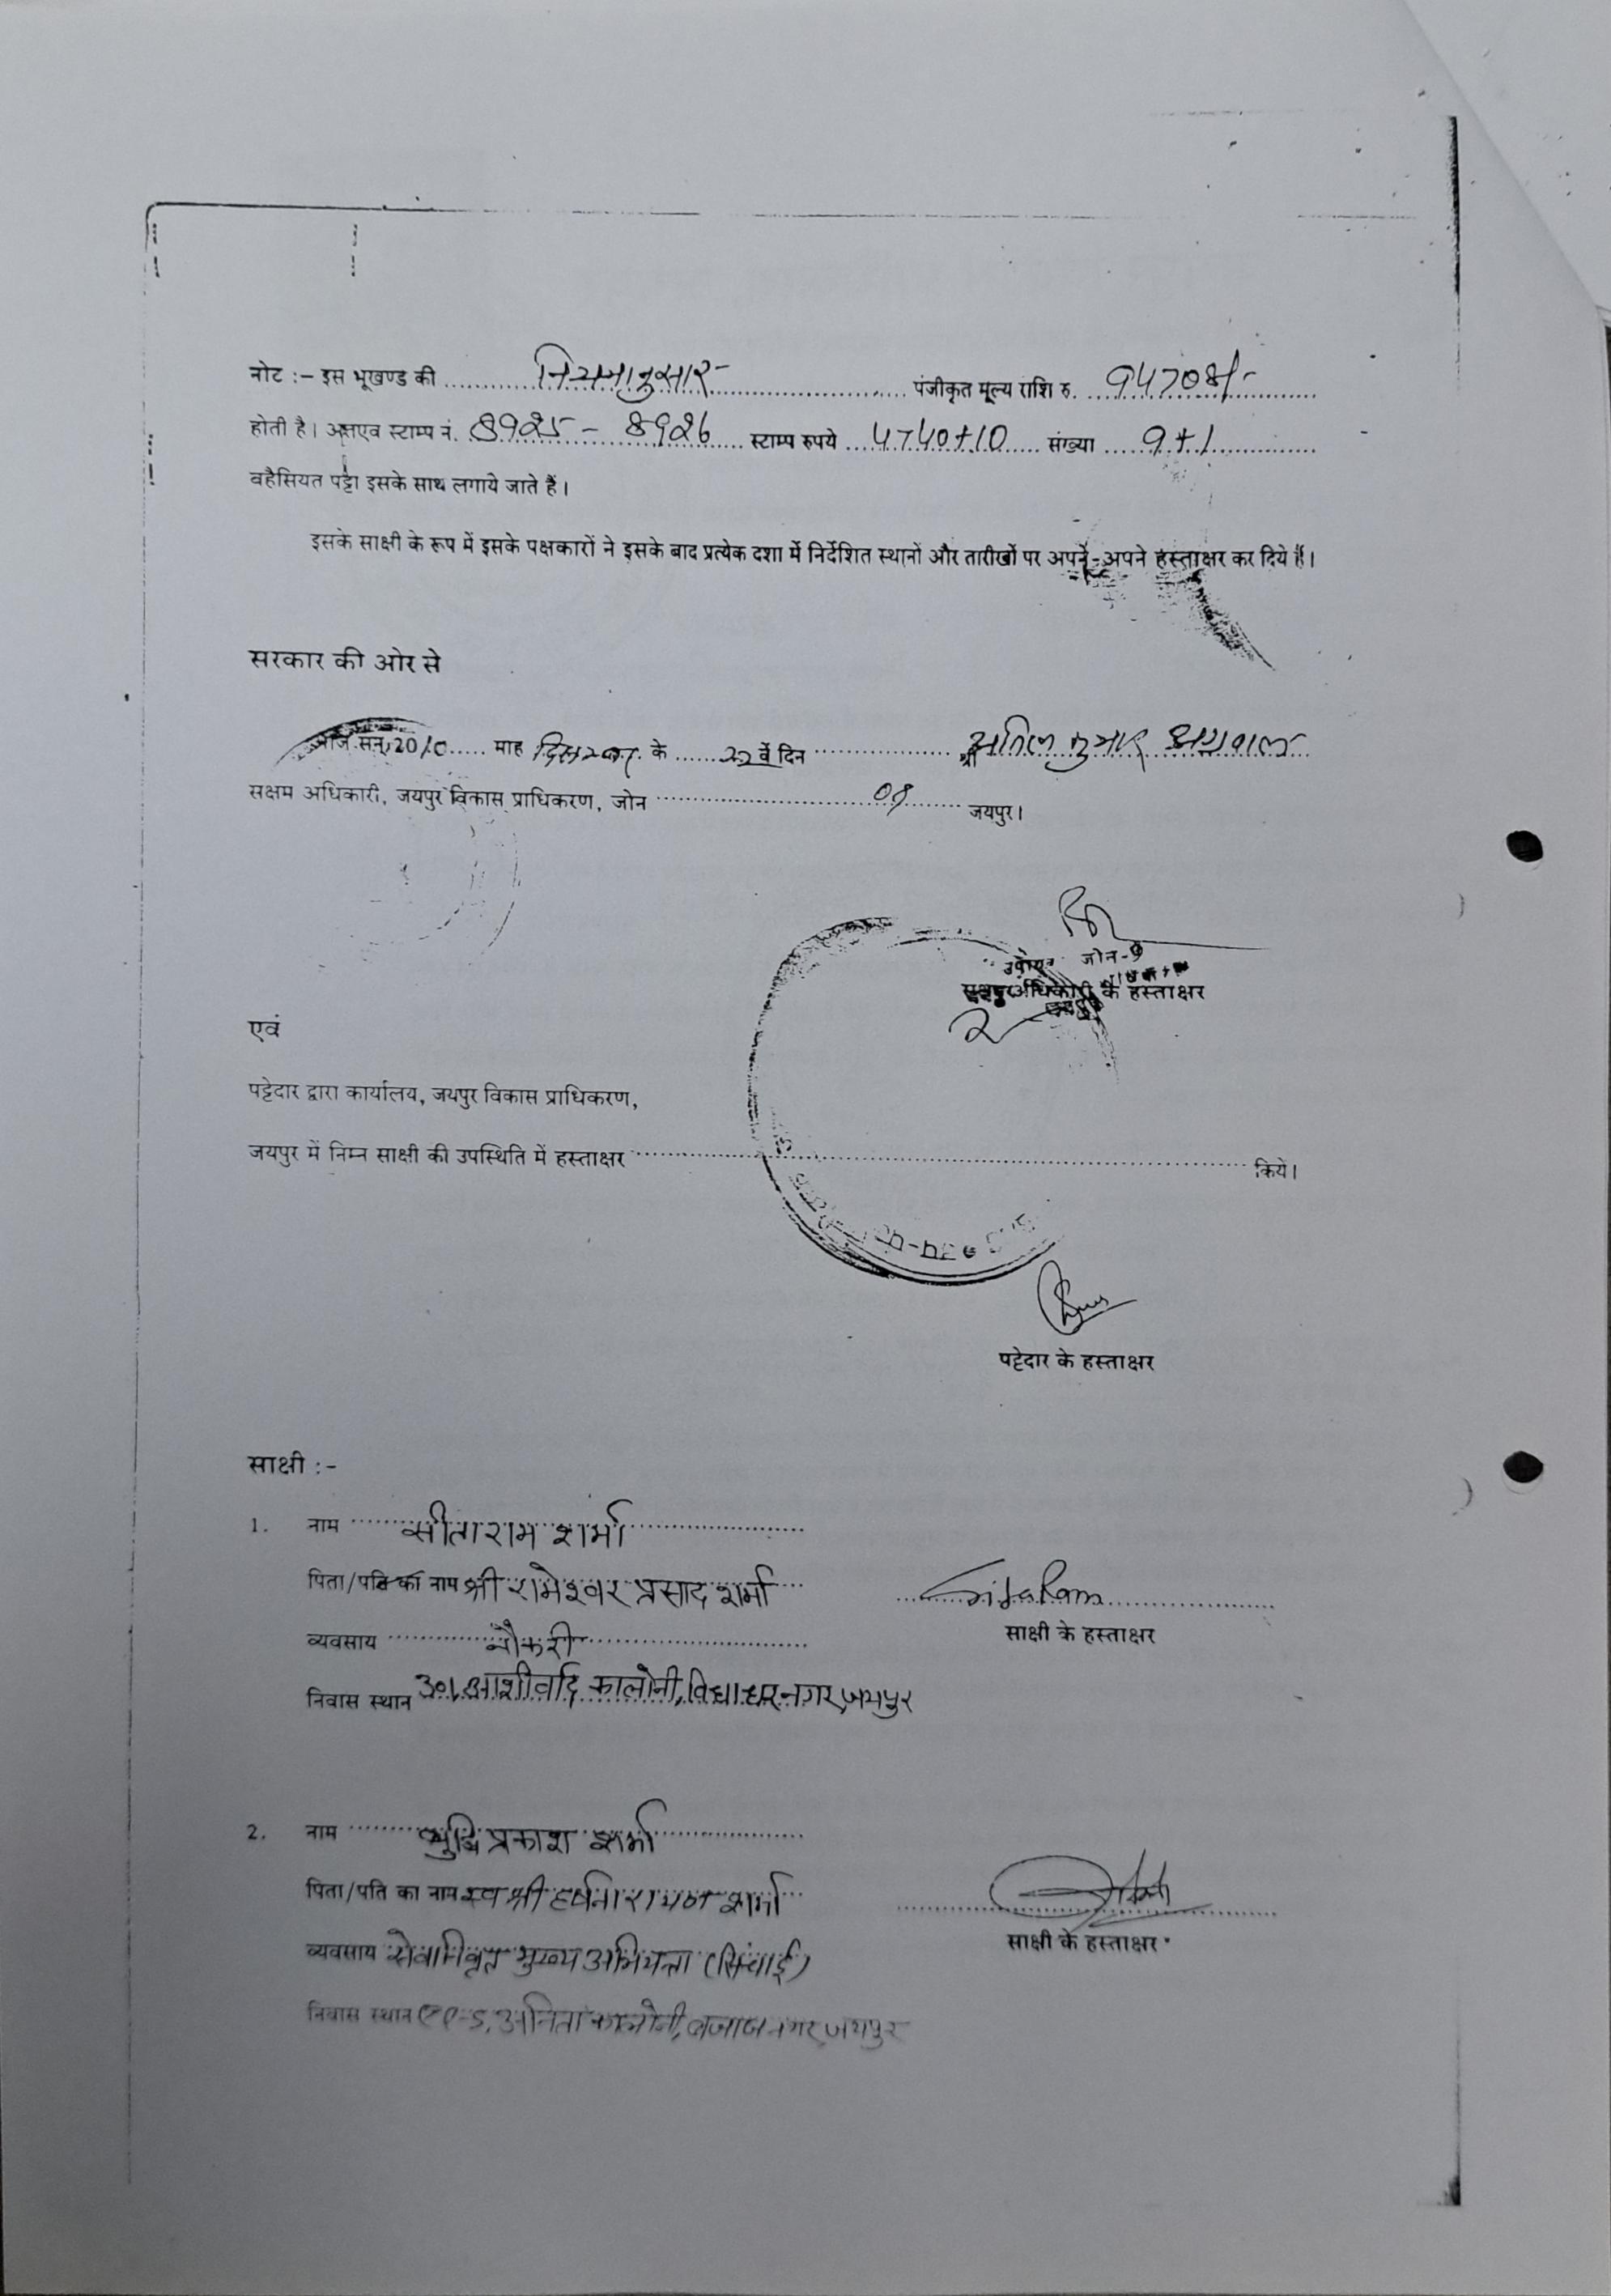 नोट :- इस भूखण्ड की नियमानुसार पंजीकृत मूल्य राशि रु. 94708/-
होती है। अतएव स्टाम्प नं. 8925 - 8926 स्टाम्प रुपये 4740+10 संख्या 9+1
वहैसियत पट्टा इसके साथ लगाये जाते हैं।
इसके साक्षी के रूप में इसके पक्षकारों ने इसके बाद प्रत्येक दशा में निर्देशित स्थानों और तारीखों पर अपने-अपने हस्ताक्षर कर दिये हैं।
सरकार की ओर से
आज सन् 2010 माह दिसम्बर के 22 वें दिन श्री अनिल कुमार अग्रवाल
सक्षम अधिकारी, जयपुर विकास प्राधिकरण, जोन 09 जयपुर।
जोन-9
सक्षम अधिकारी के हस्ताक्षर
एवं
पट्टेदार द्वारा कार्यालय, जयपुर विकास प्राधिकरण,
जयपुर में निम्न साक्षी की उपस्थिति में हस्ताक्षर किये।
पट्टेदार के हस्ताक्षर
साक्षी :-
1. नाम सीताराम शर्मा
पिता/पति का नाम श्री रामेश्वर प्रसाद शर्मा SitaRam
व्यवसाय नौकरी साक्षी के हस्ताक्षर
निवास स्थान 301, आशीर्वाद कालोनी, विद्याधर नगर, जयपुर
2. नाम प्रकाश शर्मा
पिता/पति का नाम स्व श्री हर्षनारायण शर्मा
व्यवसाय सेवानिवृत मुख्य अभियन्ता (सिंचाई) साक्षी के हस्ताक्षर
निवास स्थान अनिता कालोनी, बजाज नगर, जयपुर